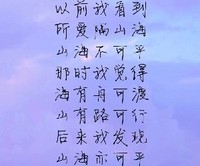 以前我看到
所爱隔山海
山海不可平
那时我觉得
海有舟可渡
山有路可行
后来我发现
山海亦可平